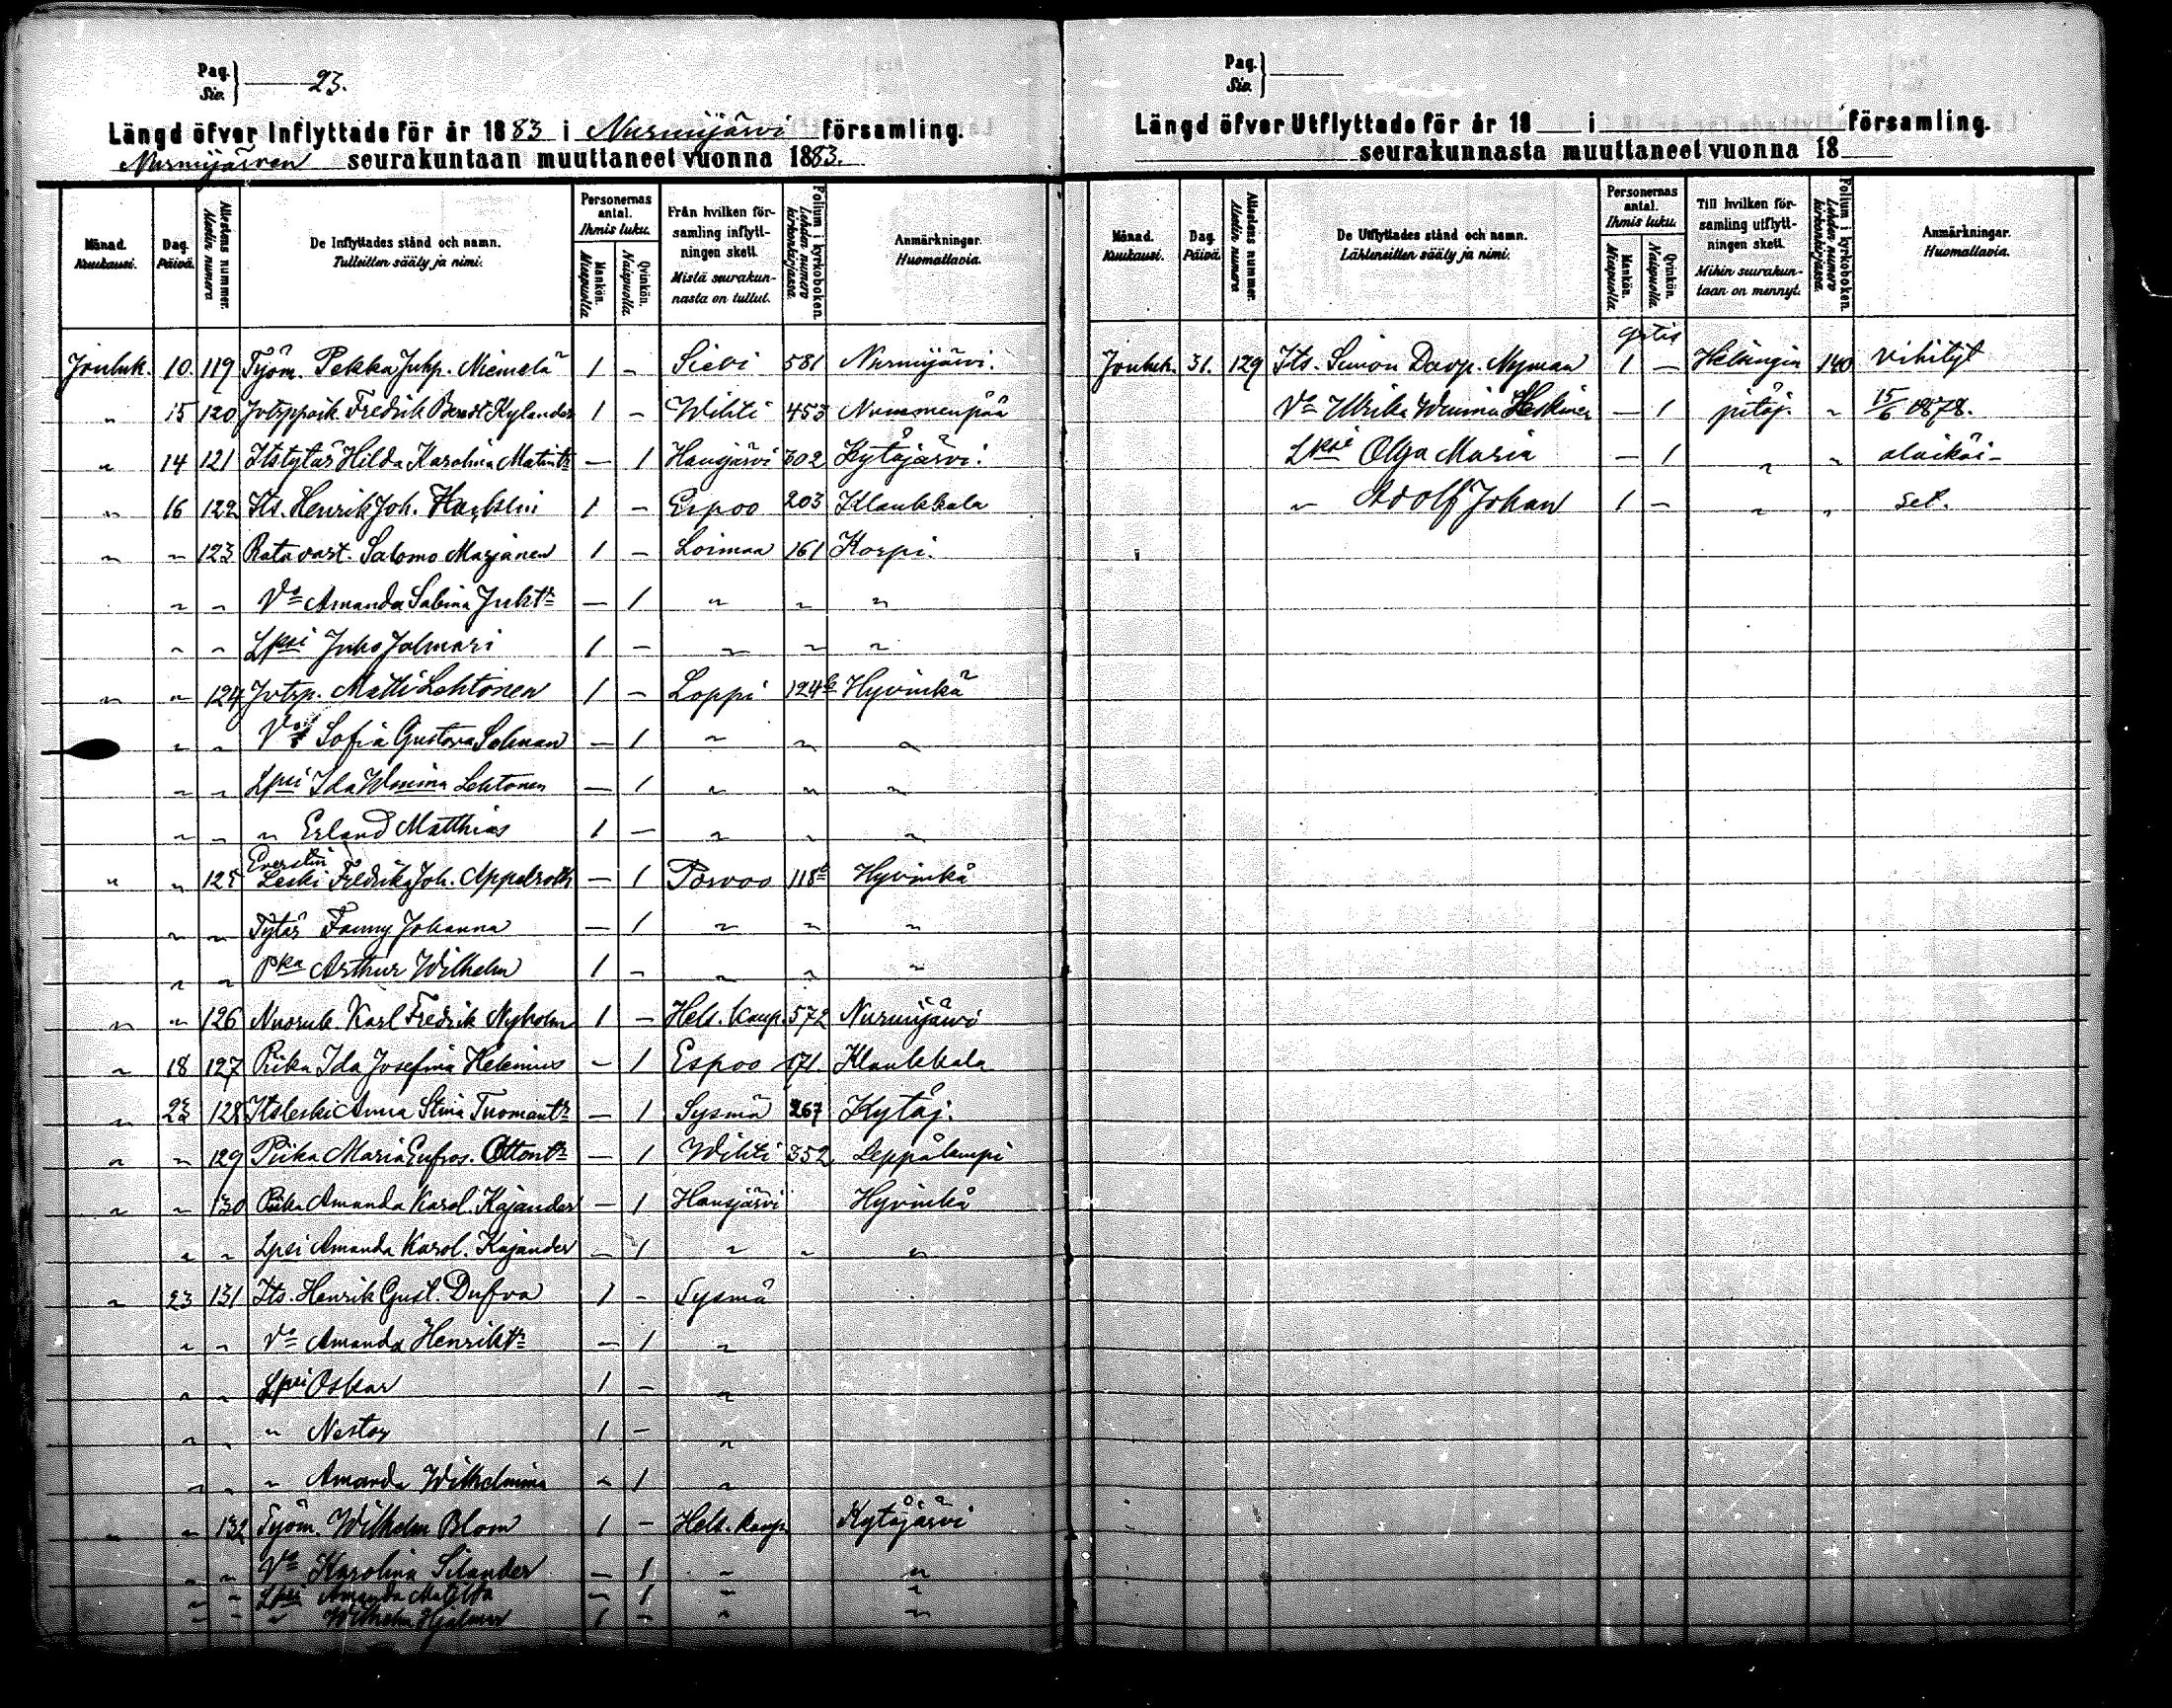 Pag. Siv. } 23.
Längd öfver Inflyttade för år 1883 i Nurmijärvi församling.
Nurmijärven seurakuntaan muuttaneet vuonna 1883.
Månad. Kuukausi. | Dag. Päivä. | Attestens nummer. Alestin numero | De Inflyttades stånd och namn. Tulleitten sääty ja nimi. | Personernas antal. Ihmis luku. Mankön. Miespuolia | Qvinkön. Naispuolia | Från hvilken församling inflyttningen skett. Mistä seurakunnasta on tullut. | Folium i kyrkoboken. Lehden numero kirkonkirjassa. | Anmärkningar. Huomattavia.
Jouluk. 10. 119 Työm. Pekka Juhp. Niemelä 1 - Sievi 581 Nurmijärvi.
" 15 120 Jvtsppoik Fredrik Berndt Kylander 1 - Wihti 453 Nummenpää
" 14 121 Itstytär Hilda Karolina Matintr — 1 Hausjärvi 302 Kytäjärvi.
" 16 122 Its. Henrik Joh. 1 - Espoo 203 Klaukkala
" " 123 Ratavart. Salomo Marjanen 1 - Loimaa 161 Korpi.
" " Vo Amanda Sabina Juhtr — 1 " " "
" " Lpsi Juho Jalmari 1 - " " "
" " 124 Jvtsp. Matti Lehtonen 1 - Loppi 124 b Hyvinkä
" " Vo Sofia Gustava Selman — 1 " " "
" " Lpsi Ida Wmina Lehtonen — 1 " " "
" " " Erland Matthias 1 — " " "
Everstin
" " 125 Leski Fredrika Joh. Appelroth — 1 Porvoo 118 Hyvinkä
" " Tytär Fanny Johanna — 1 " " "
" " Pka Arthur Wilhelm 1 - " " "
" " 126 Nuoruk. Karl Fredrik Nyholm 1 - Hels. kaup. 572 Nurmijärvi
" 18 127 Piika Ida Josefina Helenius - 1 Espoo 171. Klaukkala
" 22 128 Itsleski Anna Stina Tuomantr — 1 Sysmä 267 Kytäj.
" " 129 Piika Maria Eufros. Ottontr — 1 Wihti 352 Leppälampi
" " 130 Piika Amanda Karol. Kajander — 1 Hausjärvi Hyvinkä
" " Lpsi Amanda Karol. Kajander — 1 " " "
" 23 131 Its. Henrik Gust. Dufva 1 - Sysmä
" " Vo Amanda Henriktr — 1 "
" " Lpsi Oskar 1 - "
" " " Nestor 1 - "
" " " Amanda Wilhelmina - 1 "
" " 132 Työm. Wilhelm Blom 1 - Hels. kaup. Kytäjärvi
" " Vo Karolina Silander — 1 " "
" " Lpsi Amanda Matilda — 1 " "
" " " Wilhelm Hjalmar 1 - " "
Pag. Siv. }
Längd öfver Utflyttade för år 18 i församling.
seurakunnasta muuttaneet vuonna 18
Månad. Kuukausi. | Dag. Päivä. | Attestens nummer. Alestin numero | De Utflyttades stånd och namn. Lähteneitten sääty ja nimi. | Personernas antal. Ihmis luku. Mankön. Miespuolia | Qvinkön. Naispuolia | Till hvilken församling utflyttningen skett. Mihin seurakuntaan on mennyt. | Folium i kyrkoboken. Lehden numero kirkonkirjassa. | Anmärkningar. Huomattavia.
gratis
Jouluk. 31. 129 Its. Simon Davp. Nyman 1 — Helsingin 140 vihityt
Vo Ulrika Wmina — 1 pitäj. " 15/6 1878.
Lpsi Olga Maria — 1 " " alaikäi-
" Adolf Johan 1 — " " set.